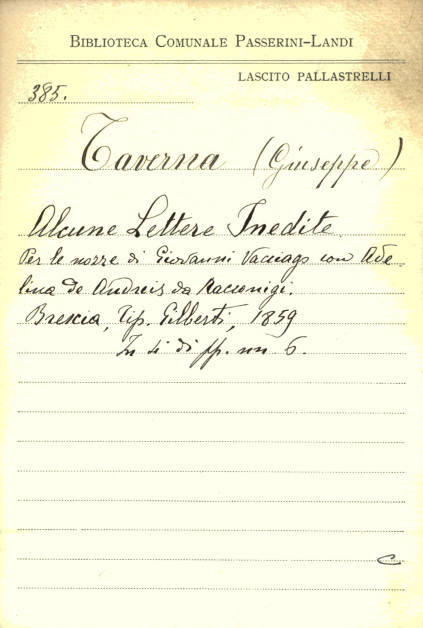 BIBLIOTECA COMUNALE PASSERINI-LANDI
LASCITO PALLASTRELLI
385.
Taverna (Giuseppe)
Alcune Lettere Inedite.
Per le nozze di Giovanni con Ade-
lina de Andreis da Racconigi.
Brescia, Tip. Gilberti, 1859
In 4 di pp. nn 6.
C